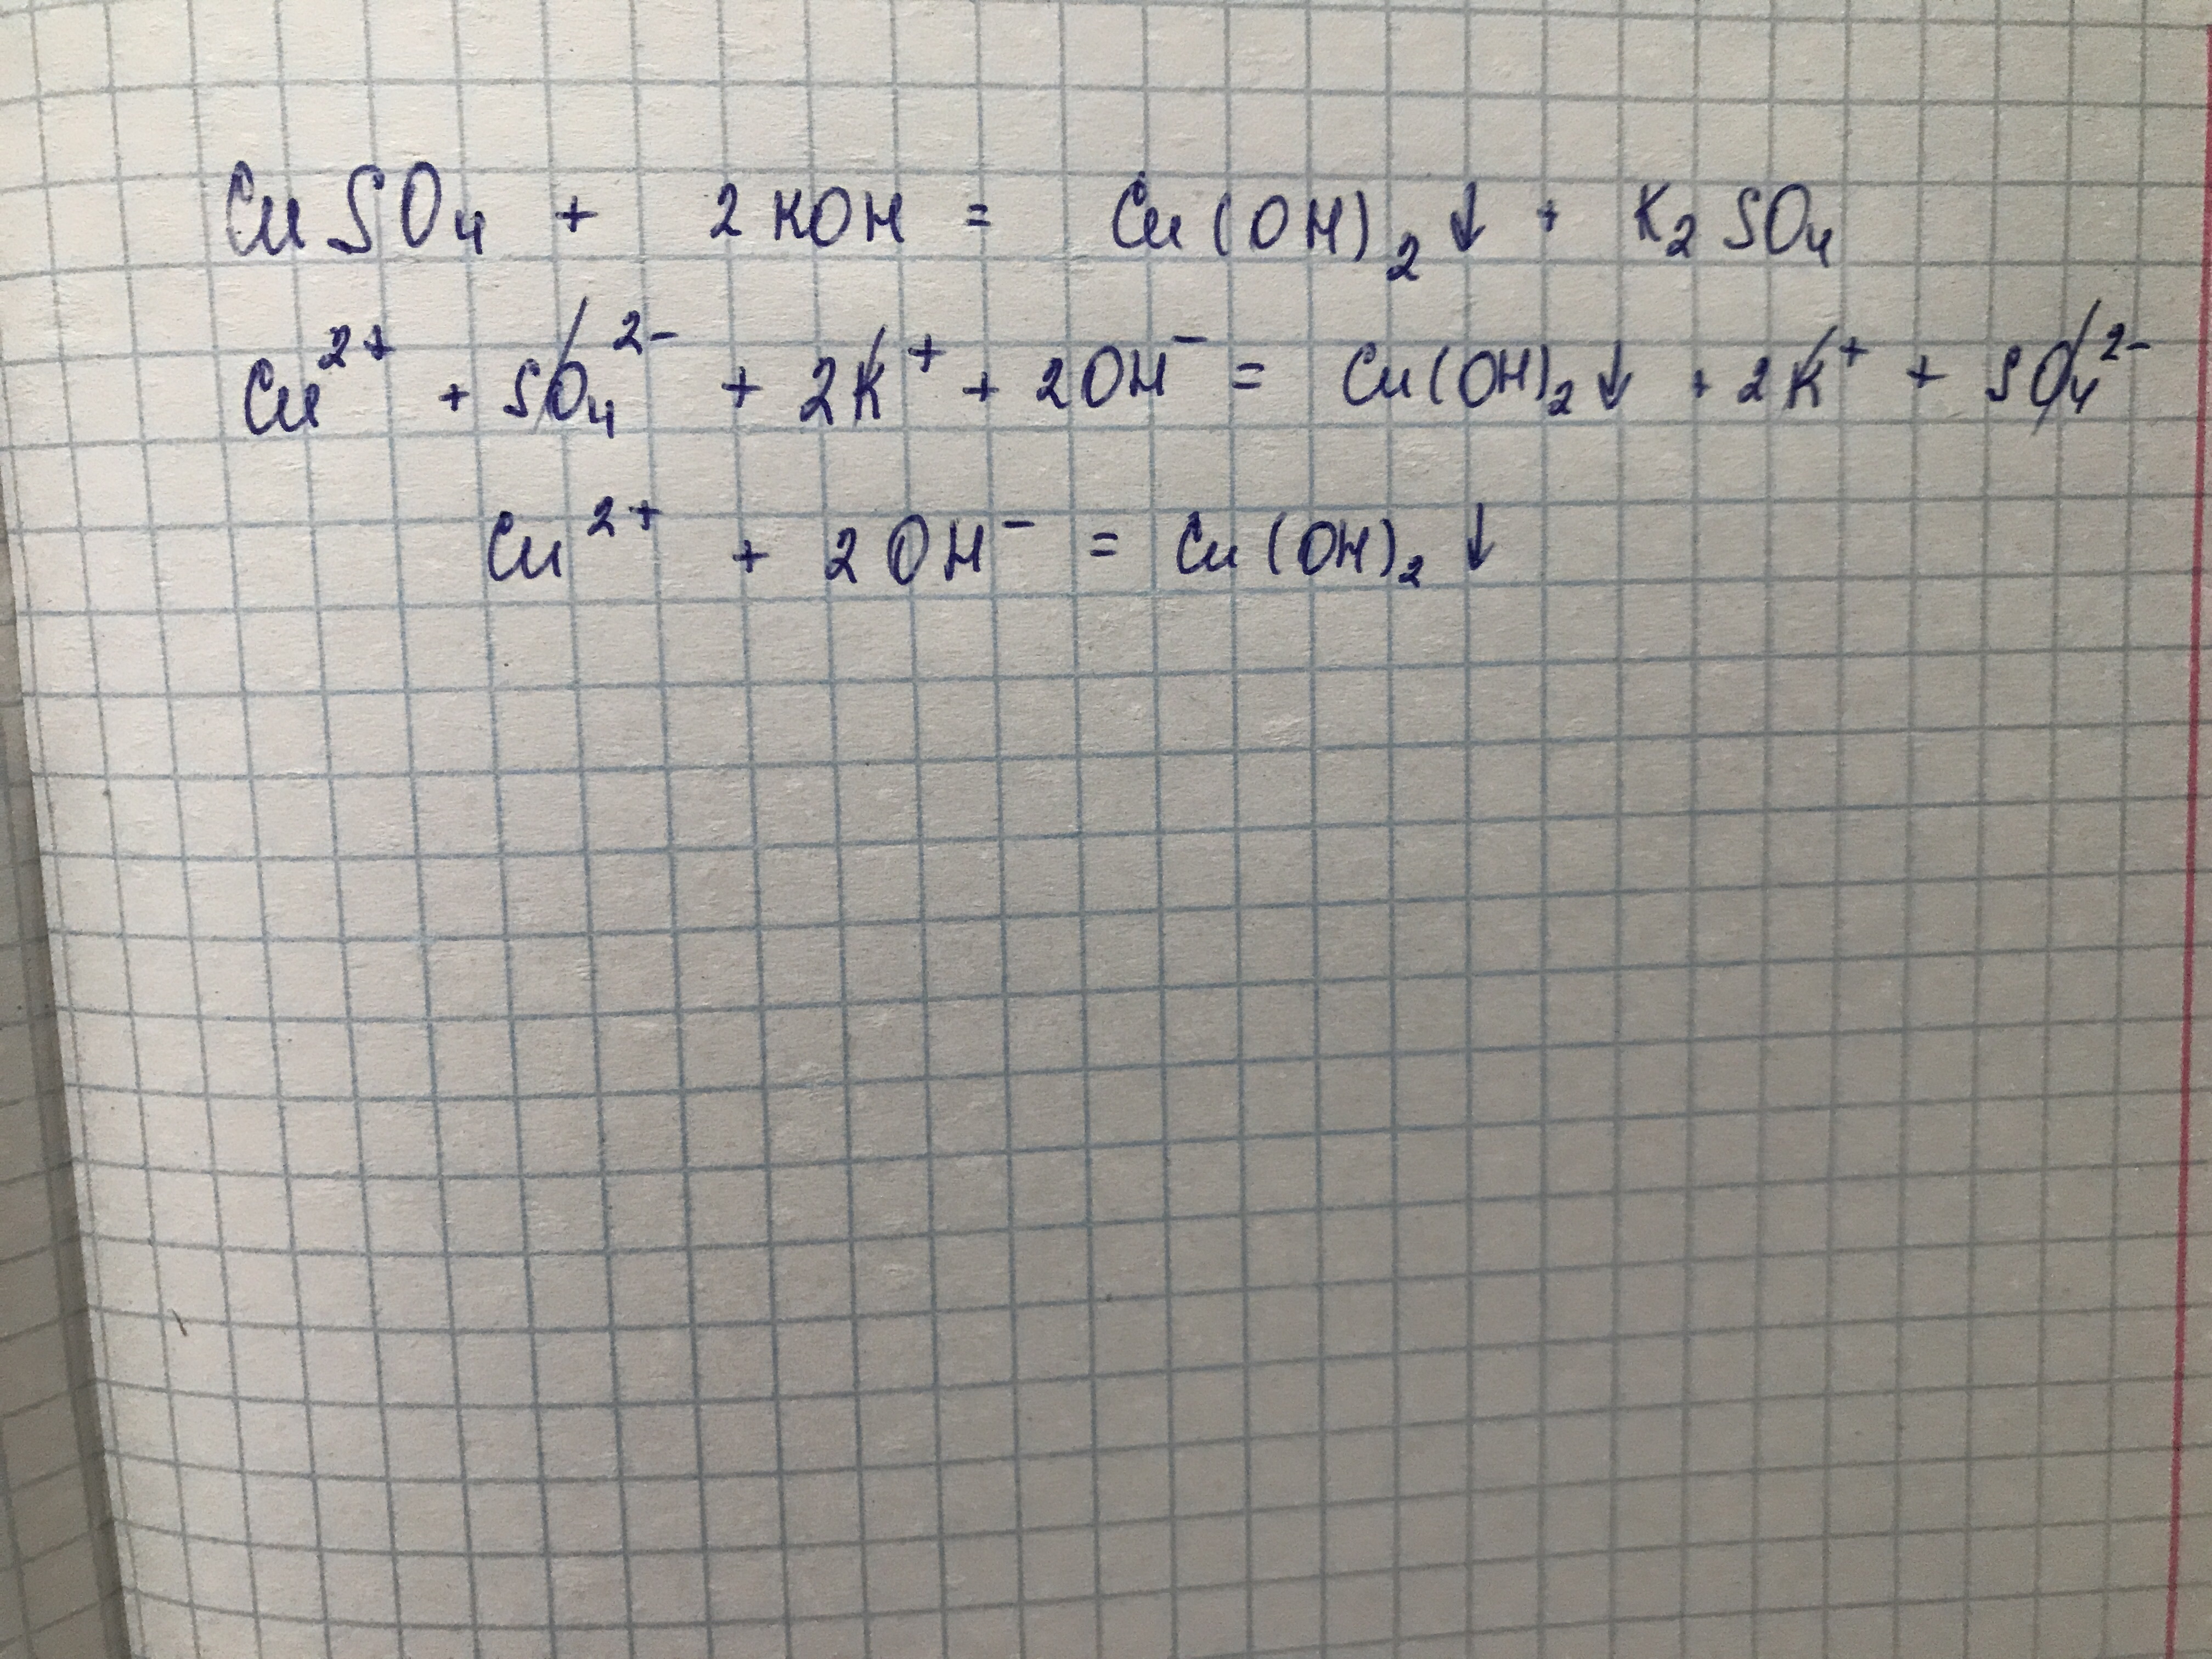 CuSO₄ + 2KOH = Cu(OH)₂↓ + K₂SO₄
Cu²⁺ + SO₄²⁻ + 2K⁺ + 2OH⁻ = Cu(OH)₂↓ + 2K⁺ + SO₄²⁻
Cu²⁺ + 2OH⁻ = Cu(OH)₂↓